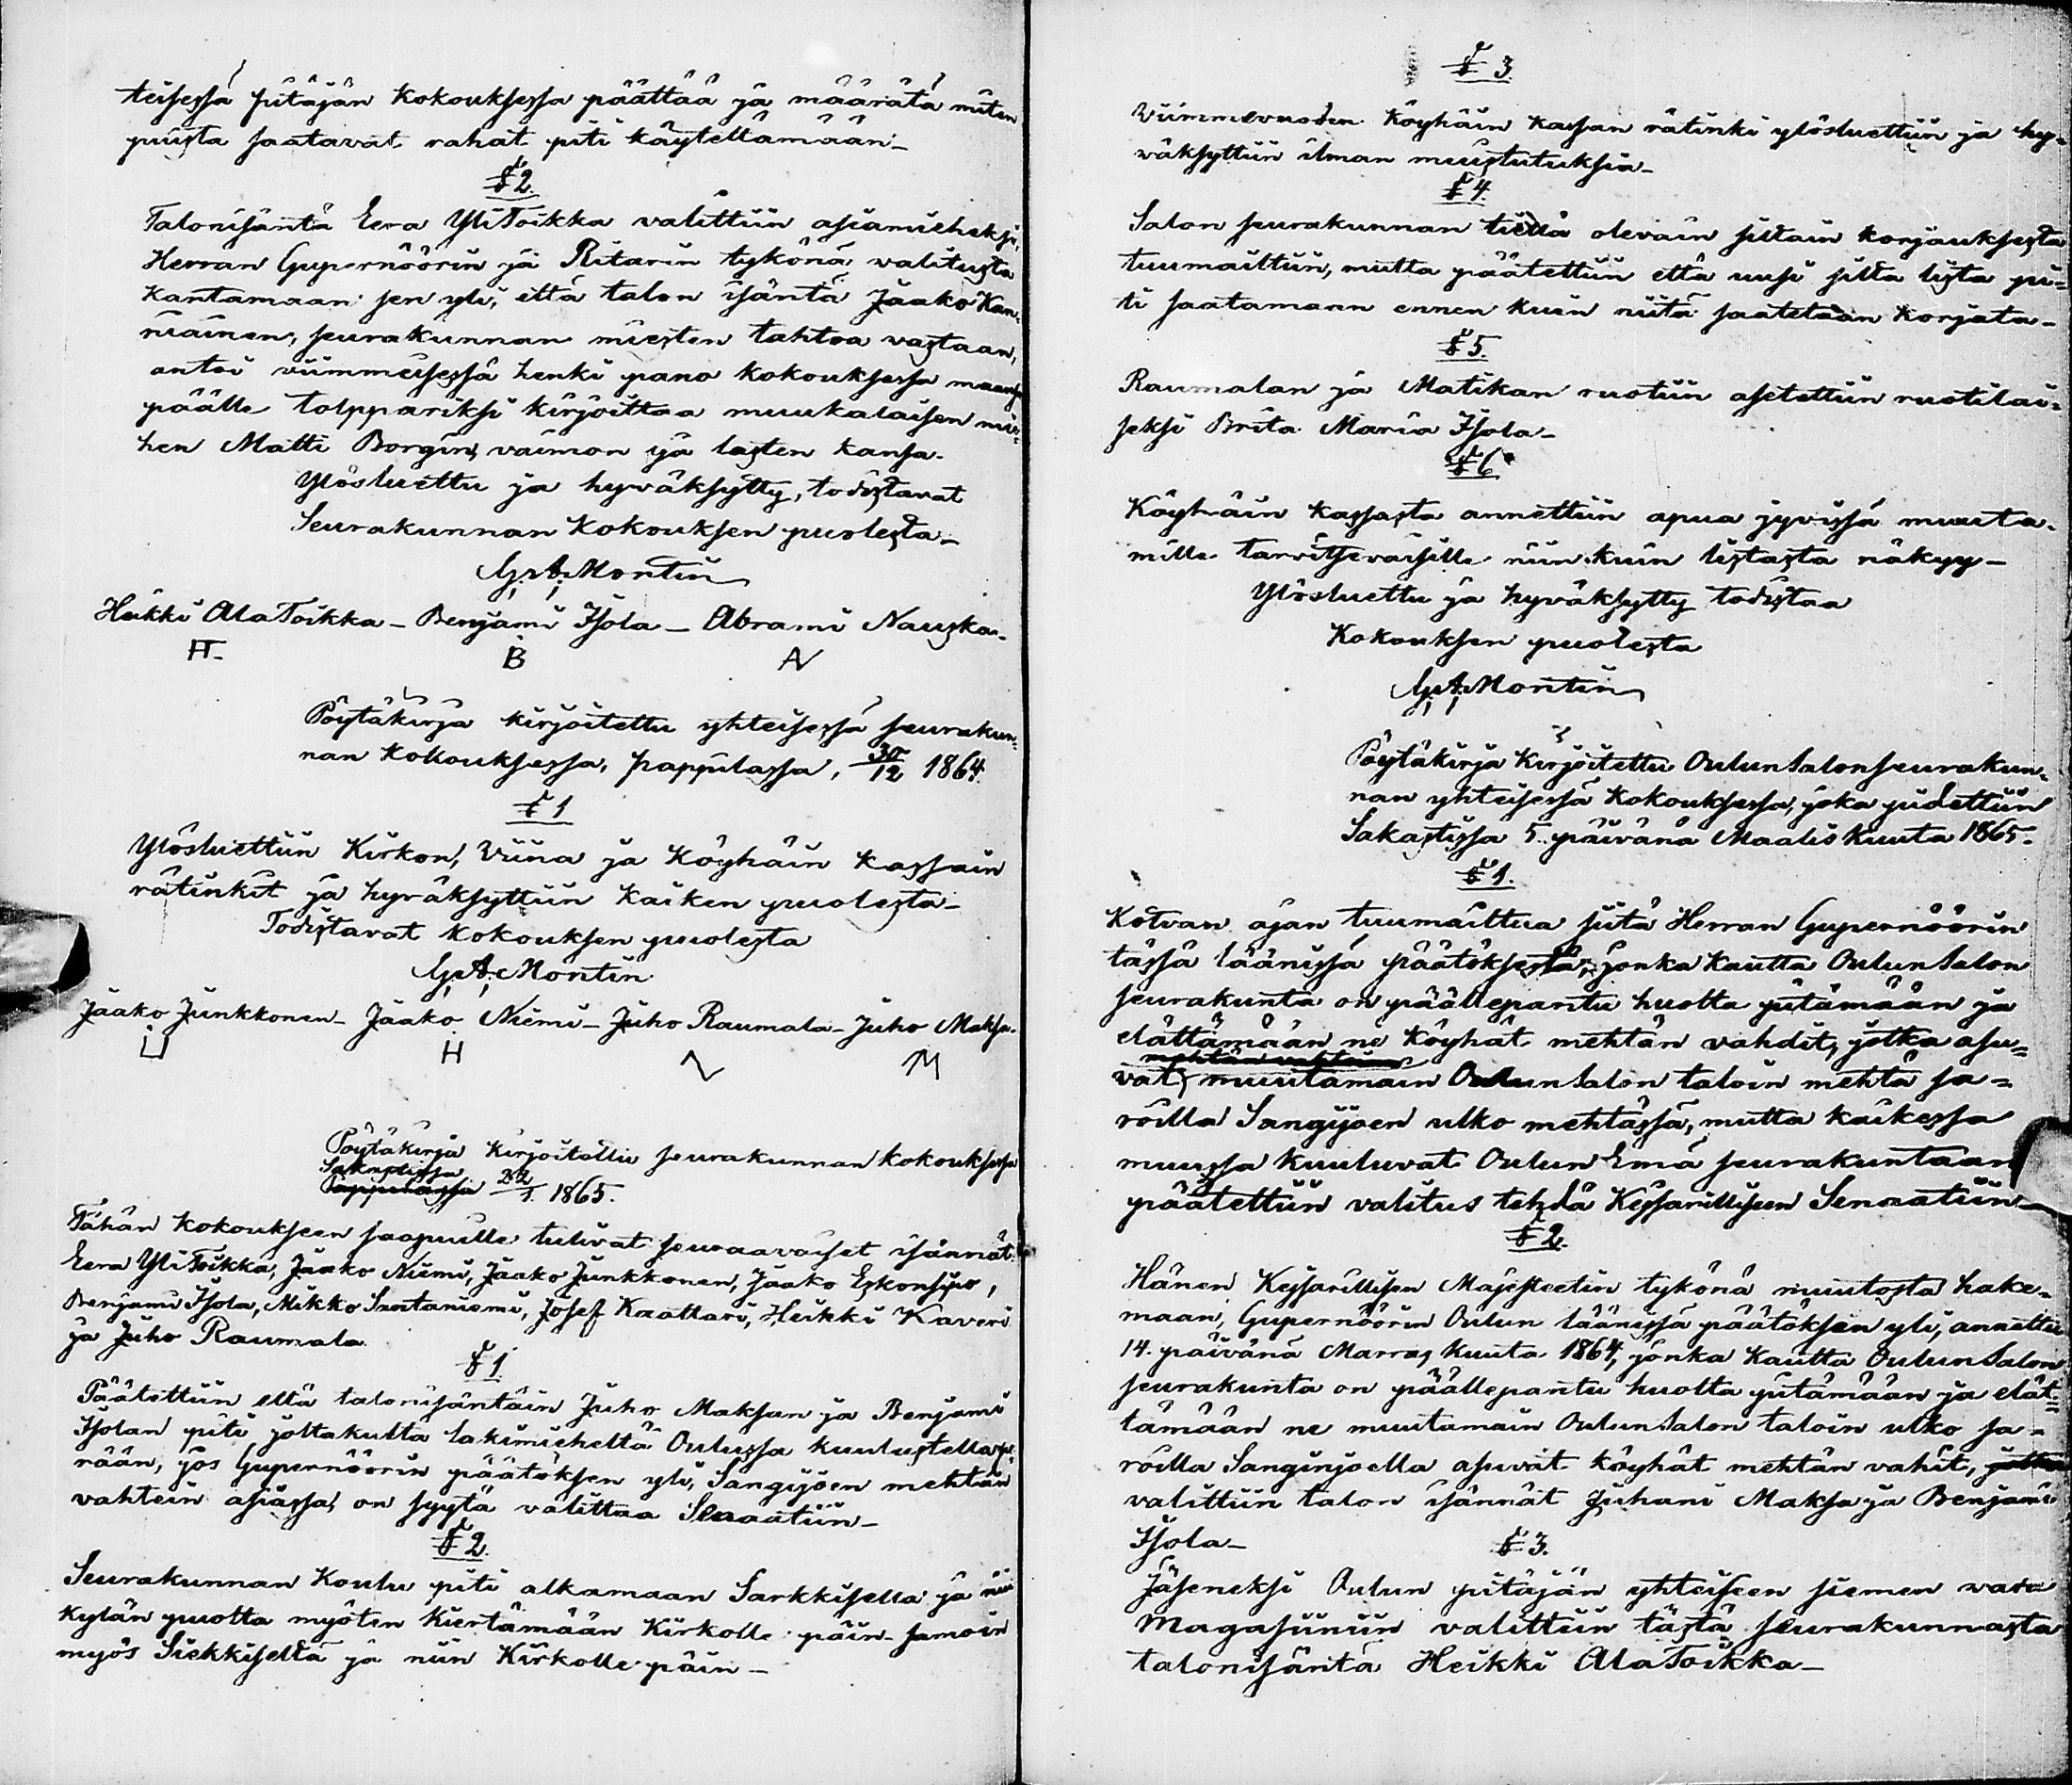 teisessä pitäjän kokouksessa päättää ja määrätä miten
puista saatavat rahat piti käytettämään_
§ 2.
Talonisäntä Eera YliToikka valittiin asiamieheksi,
Herran Gupernöörin ja Ritarin tykönä valitusta
kantamaan sen yli, että talon isäntä Jaako Kan-
niainen, seurakunnan miesten tahtoa vastaan,
antoi viimmeisessä henki pano kokouksessa maansa
päälle tolppariksi kirjoittaa muukalaisen mie-
hen Matti Borgin, vaimon ja lasten kansa.
Ylösluettu ja hyväksytty, todistavat
Seurakunnan kokouksen puolesta_
G. A. Montin
Heikki AlaToikka _ Benjami Isola _ Abrami Nauska.
HT. B A
Pöytäkirja kirjoitettu yhteisessä seurakun-
nan kokouksessa, pappilassa, 30/12 1864.
§ 1
Ylösluettiin Kirkon, Viina ja Köyhäin kassain
rätinkit ja hyväksyttiin kaiken puolesta_
Todistavat kokouksen puolesta
G. A. Montin
Jaako Junkkonen _ Jaako Niemi _ Juho Raumala _ Juho Maksa.
H M
Pöytäkirja kirjoitettu seurakunnan kokouksessa
Sakastissa
Pappilassa 22/1. 1865.
Tähän kokoukseen saapuille tulivat seuraavaiset isännät:
Eera YliToikka, Jaako Niemi, Jaako Junkkonen, Jaako Eskonsipo,
Benjami Isola, Mikko Santaniemi, Josef Kaattari, Heikki Kaveri
ja Juho Raumala.
§ 1.
Päätettiin että talonisäntäin Juho Maksan ja Benjami
Isolan piti joltakulta lakimieheltä Oulussa kuulustella pe-
rään, jos Gupernöörin päätöksen yli, Sangijoen mehtän
vahtein asiassa, on syytä valittaa Senaatiin_
§ 2.
Seurakunnan Koulu piti alkamaan Sarkkisella ja niin
kylän puolta myöten kiertämään Kirkolle päin _ samoin
myös Siekkiseltä ja niin Kirkolle päin _
§ 3.
Viimmevuoden Köyhäin kassan rätinki ylösluettiin ja hy-
väksyttiin ilman muistutuksia_
§ 4.
Salon seurakunnan tiellä olevain siltain korjauksesta
tuumailtiin, mutta päätettiin että uusi silta lista pi-
ti saatamaan ennen kuin niitä saatetaan korjata_
§ 5.
Raumalan ja Matikan ruotiin asetettiin ruotilai-
seksi Brita Maria Isola_
§ 6.
Köyhäin kassasta annettiin apua jyvissä muuta-
mille tarvitsevaisille niin kuin listasta näkyy_
Ylösluettu ja hyväksytty todistaa
Kokouksen puolesta
G. A. Montin
Pöytäkirja kirjoitettu OulunSalon seurakun-
nan yhteisessä kokouksessa, joka pidettiin
Sakastissa 5. päivänä Maaliskuuta 1865.
§ 1.
Kotvan ajan tuumailtua siitä Herran Gupernöörin
tässä läänissä päätöksestä, jonka kautta OulunSalon
seurakunta on päällepantu huolta pitämään ja
elättämään ne köyhät mehtän vahdit, jotka asu-
mehtän vahteina
vat muutamain OulunSalon taloin mehtä sa-
roilla Sangijoen ulko mehtässä, mutta kaikessa
muussa kuuluvat Oulun Emä seurakuntaan
päätettiin valitus tehdä Keisarilliseen Senaatiin_
§ 2.
Hänen Keisarillisen Majesteetin tykönä muutosta hake-
maan, Gupernöörin Oulun läänissä päätöksen yli, annettu
14. päivänä Marras kuuta 1864, jonka kautta OulunSalon
seurakunta on päällepantu huolta pitämään ja elät-
tämään ne muutamain OulunSalon taloin ulko sa-
roilla Sanginjoella asuvat köyhät mehtän vahit, jotka
valittiin talon isännät Juhani Maksa ja Benjami
Isola_
§ 3.
Jäseneksi Oulun pitäjän yhteiseen siemen vara
Magasiiniin valittiin tästä seurakunnasta
talonisäntä Heikki AlaToikka_